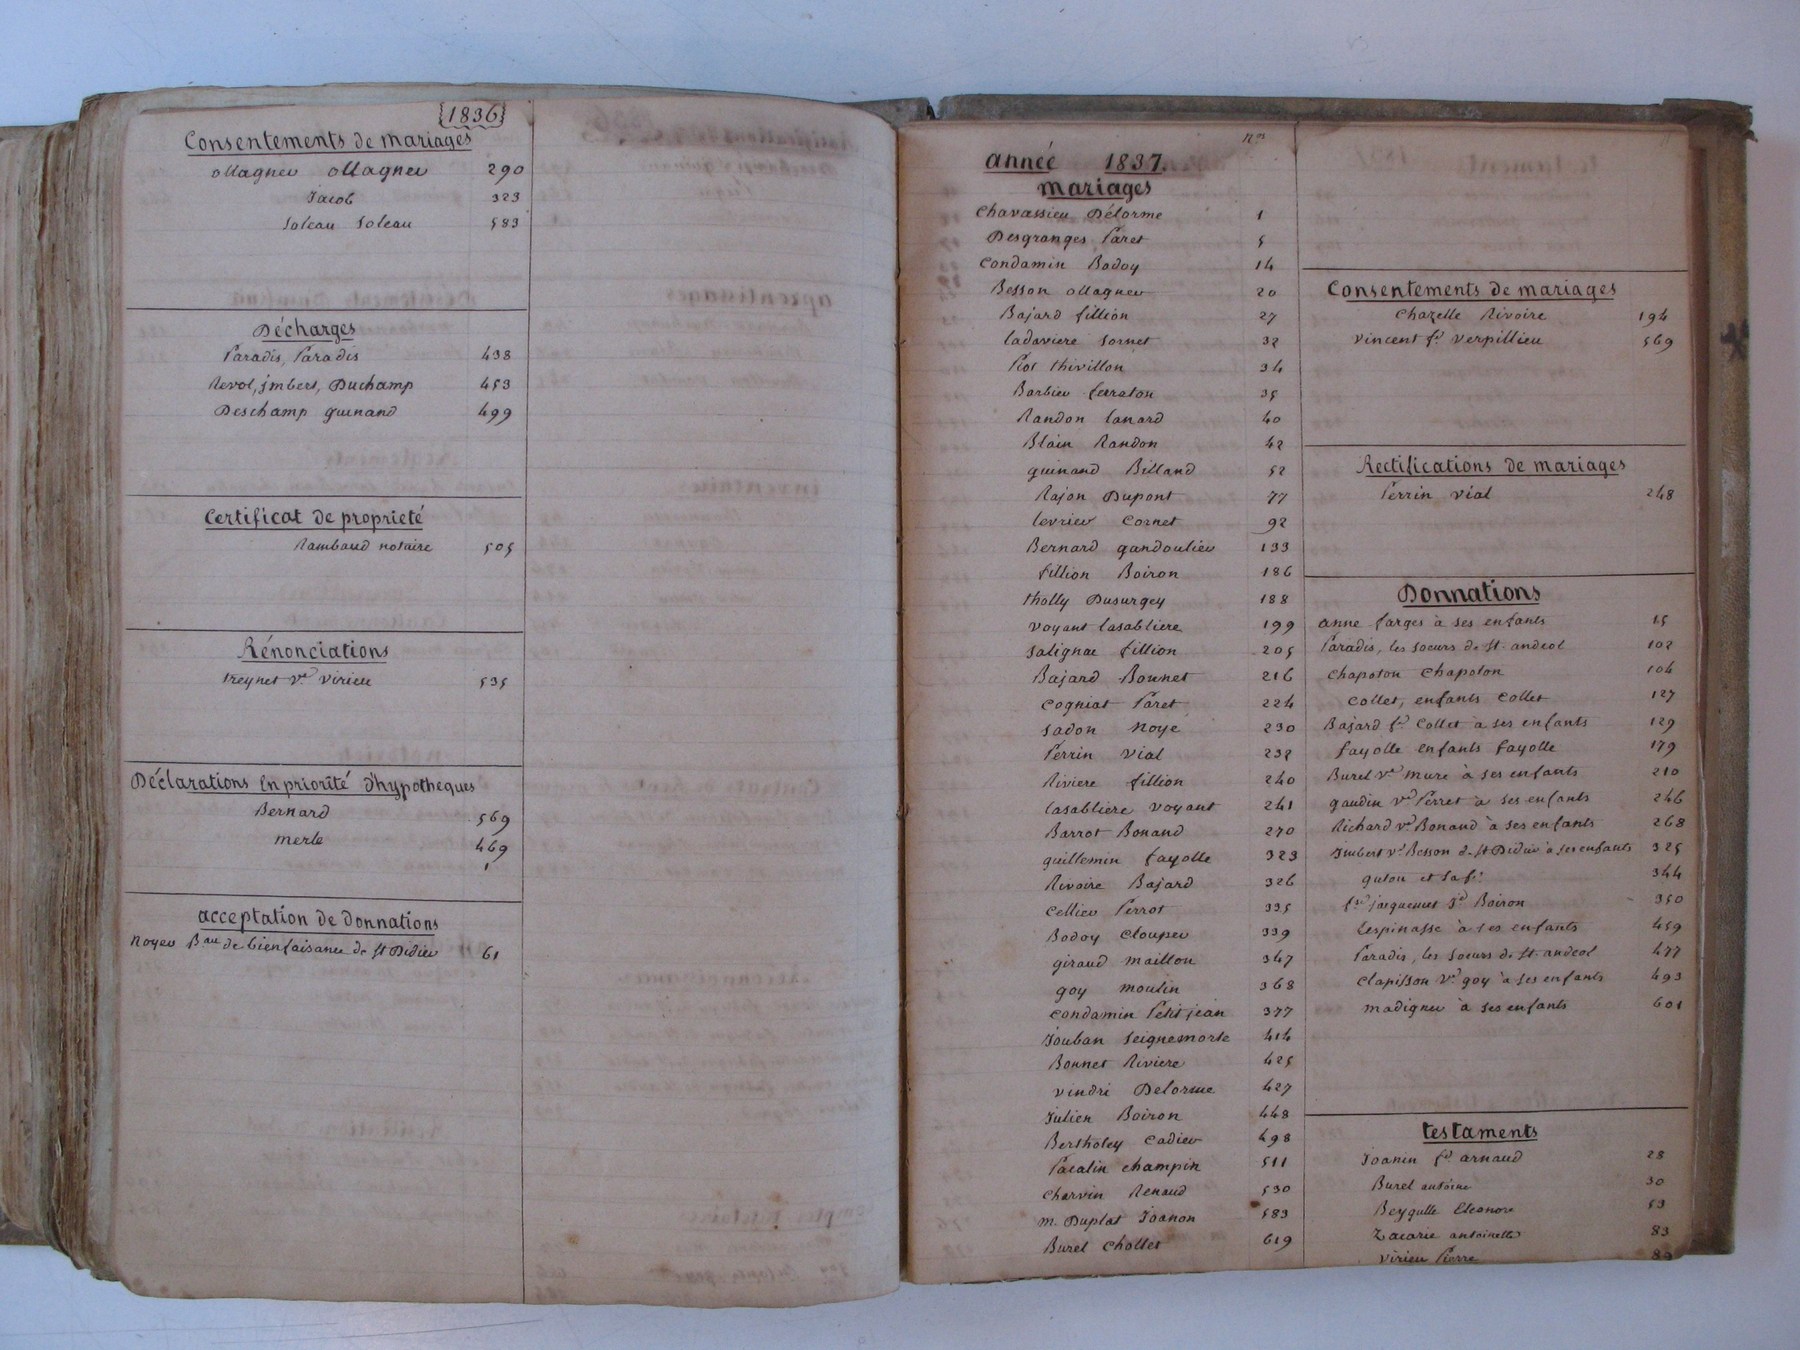 1836
Consentements de mariages
Magner Magner 290
Jacob 323
Soleau Soleau 583
Décharges
Paradis, Paradis 438
Revol, jmbert, Duchamp 453
Deschamp guinand 499
Certificat de proprieté
Rambaud notaire 505
Rénonciations
treynet Ve virieu 535
Déclarations En priorité d'hypotheques
Bernard 569
merle 469
acceptation de donnations
Noyer Bau de bienfaisance de St Didier 61
nos
année 1837.
mariages
Chavassieu Délorme 1
Desgranges Paret 5
Condamin Bodoy 14
Besson Magner 20
Bajard fillion 27
ladaviere Sornet 32
Plot thivillon 34
Barbier ferraton 35
Randon lanard 40
Blain Randon 42
guinand Billand 52
Rajon Dupont 77
levrier Cornet 92
Bernard gandoulier 133
fillion Boiron 186
tholly Dusurgey 188
voyant lasabliere 199
Salignac fillion 205
Bajard Bonnet 216
Cogniat Paret 224
Sadon Noyé 230
Perrin vial 232
Riviere fillion 240
lasabliere voyant 241
Barrot Bonand 270
guillemin fayolle 323
Rivoire Bajard 326
Cellier Perrot 335
Bodoy Clouper 339
giraud maillon 347
goy moulin 368
Condamin Petit jean 377
Jouban Seignemorte 414
Bonnet Riviere 425
vindri Delorme 427
Julien Boiron 448
Bertholey Cadier 498
Pacalin champin 511
Charvin Renaud 530
m. Duplat Joanon 583
Burel Chollet 619
Consentements de mariages
Chazelle Rivoire 194
vincent fe verpillieu 569
Rectifications de mariages
Perrin vial 248
Donnations
anne farges à ses enfants 15
Paradis, les soeurs de St. andeol 102
Chapoton Chapoton 104
Collet, enfants Collet 127
Bajard fe Collet à ses enfants 129
fayolle enfants fayolle 179
Burel Ve mure à ses enfants 210
gaudin ve Perret à ses enfants 246
Richard ve Bonand à ses enfants 268
Jmbert ve Besson de St Didier à ses enfants 325
guton et sa fe 344
jacquemet Boiron 350
Lespinasse à ses enfants 459
Paradis, les soeurs de St. andeol 477
Clapisson Ve goy à ses enfants 493
madigner à ses enfants 601
testaments
Joanin fe arnaud 28
Burel antoine 30
Beygulle Eleonore 53
Zacarie antoinette 83
virieu Pierre 89